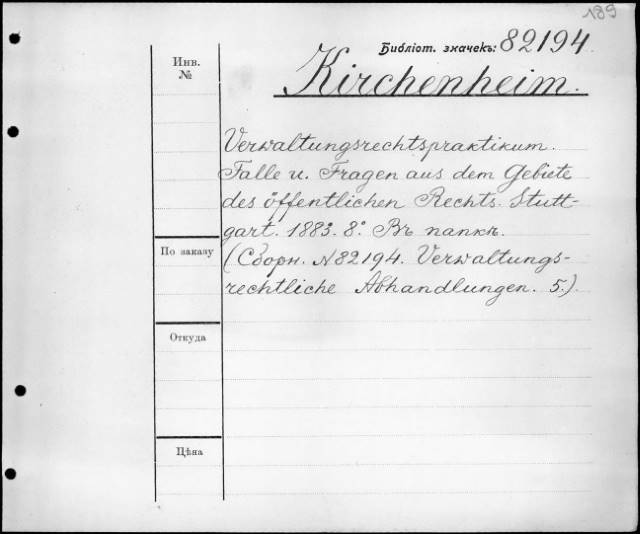 189
Библіот. значекъ: 82194.
Инв.
№
Kirchenheim.
Verwaltungsrechtspraktikum.
Fälle u. Fragen aus dem Gebiete
des öffentlichen Rechts. Stutt-
gart. 1883. 8°. Въ папкѣ.
(Сборн. №82194. Verwaltungs-
rechtliche Abhandlungen. 5.)
По заказу
Откуда
Цѣна